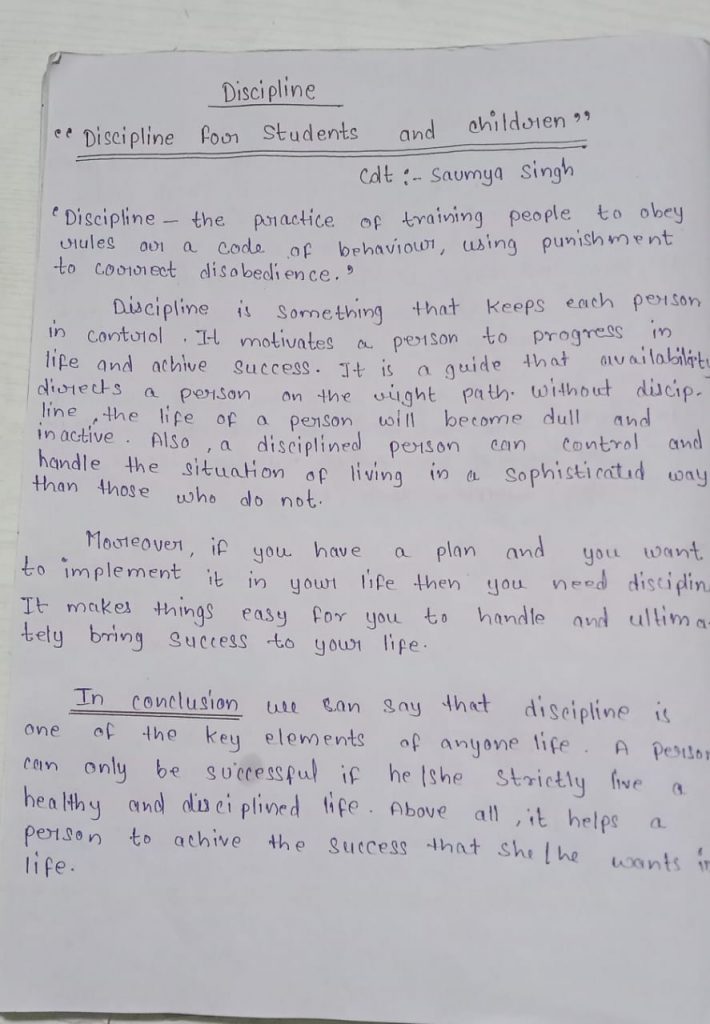 Discipline
"Discipline for Students and children"
Cdt :- Saumya Singh
'Discipline – the practice of training people to obey
rules or a code of behaviour, using punishment
to correct disobedience.'
Discipline is something that keeps each person
in control. It motivates a person to progress in
life and achive success. It is a guide that availability
directs a person on the right path. without discip-
line, the life of a person will become dull and
inactive. Also, a disciplined person can control and
handle the situation of living in a sophisticated way
than those who do not.
Moreover, if you have a plan and you want
to implement it in your life then you need disciplin
It makes things easy for you to handle and ultima-
tely bring success to your life.
In conclusion we can say that discipline is
one of the key elements of anyone life. A person
can only be successful if he/she strictly live a
healthy and disciplined life. Above all, it helps a
person to achive the success that she/he wants in
life.